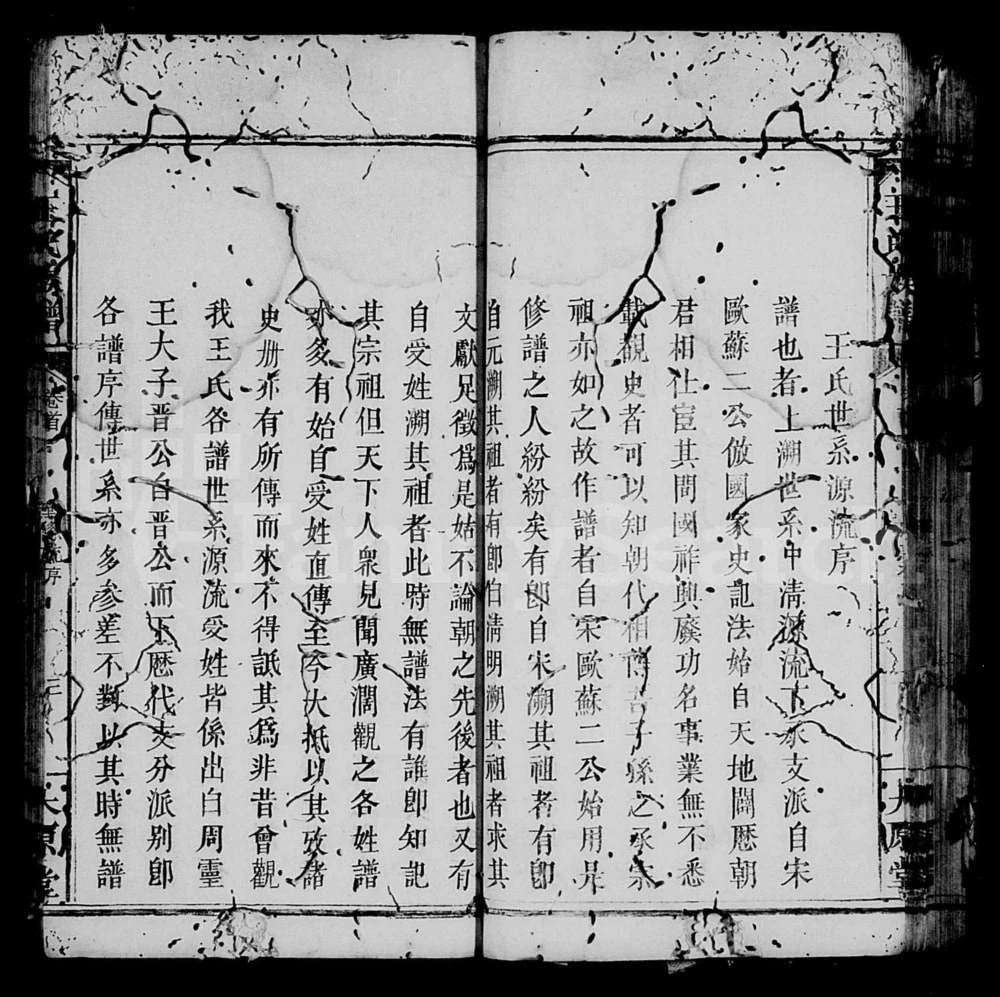 王氏世系源流序
譜也者上溯世系中清源流下承支派自宋
歐蘇二公倣國家史記法始自天地闢歷朝
君相仕宦其間國祚興廢功名事業無不悉
載覌史者可以知朝代相傳吾子孫之承宗
祖亦如之故作譜者自宋歐蘇二公始用是
修譜之人紛紛矣有卽自宋溯其祖者有卽
自元溯其祖者有卽自淸明溯其祖者求其
文獻足徵爲是姑不論朝之先後者也又有
自受姓溯其祖者此時無譜法有誰卽知記
其宗祖但天下人衆見聞廣濶觀之各姓譜
亦多有始自受姓直傳至今大抵以其攷諸
史册亦有所傳而來不得詆其爲非昔曾觀
我王氏各譜世系源流受姓皆係出自周靈
王大子晋公自晋公而下歷代支分派别卽
各譜序傳世系亦多参差不對以其時無譜
王氏族譜
卷首
序
三
太原堂